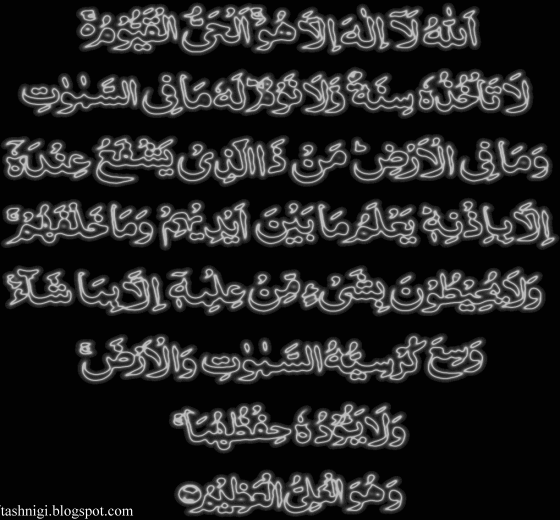 اَللّٰهُ لَآ اِلٰهَ اِلَّا هُوَ ۚ اَلْحَیُّ الْقَیُّوْمُ ۚ
لَا تَاْخُذُهٗ سِنَةٌ وَّلَا نَوْمٌ ؕ لَهٗ مَا فِی السَّمٰوٰتِ
وَمَا فِی الْاَرْضِ ؕ مَنْ ذَا الَّذِیْ یَشْفَعُ عِنْدَهٗۤ
اِلَّا بِاِذْنِهٖ ؕ یَعْلَمُ مَا بَیْنَ اَیْدِیْهِمْ وَمَا خَلْفَهُمْ ۚ
وَلَا یُحِیْطُوْنَ بِشَیْءٍ مِّنْ عِلْمِهٖۤ اِلَّا بِمَا شَآءَ ۚ
وَسِعَ كُرْسِیُّهُ السَّمٰوٰتِ وَالْاَرْضَ ۚ
وَلَا یَـُٔوْدُهٗ حِفْظُهُمَا ۚ
وَهُوَ الْعَلِیُّ الْعَظِیْمُ ۝
tashnigi.blogspot.com